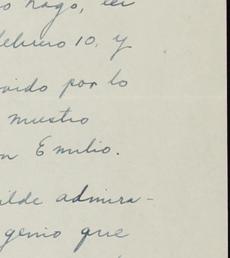 o hago, lei
febrero 10, y
vido por lo
muestro
n Emilio.
ilde admira-
genio que